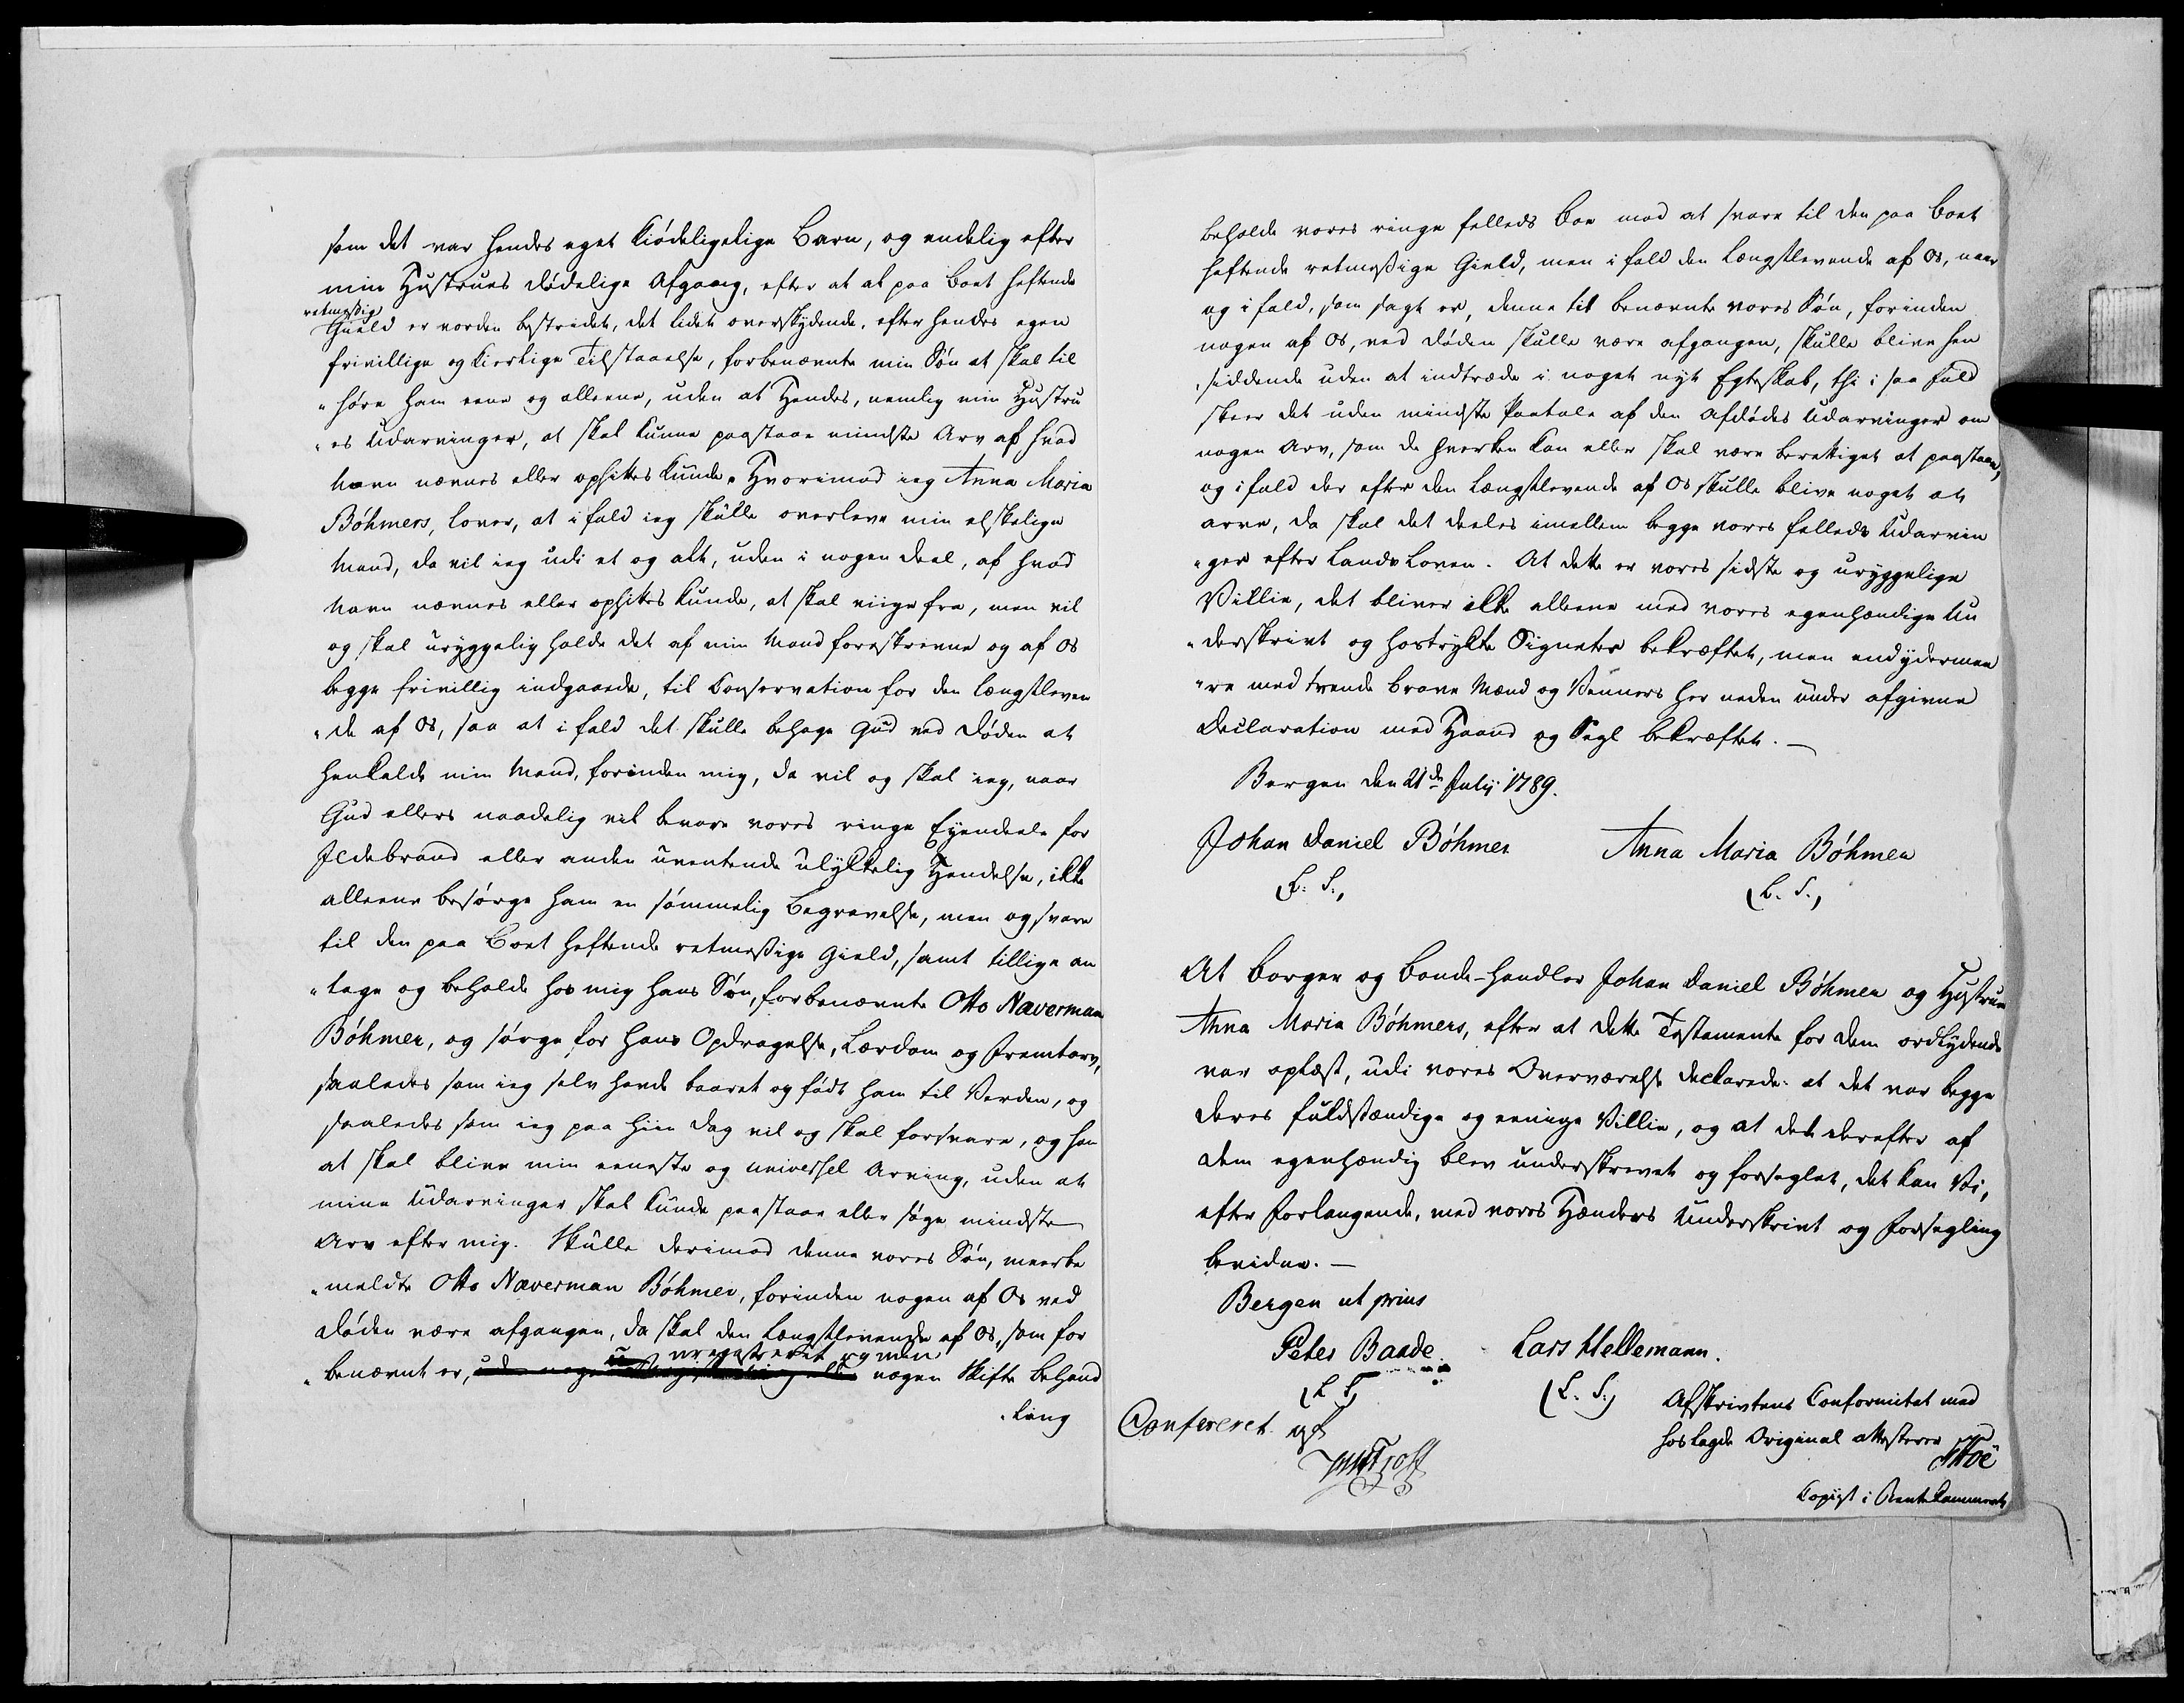 som det var hendes eget kiödeligelige Barn, og endelig efter
min Hustrues dödelige Afgang, efter at al paa Boet heftende
retmeßig
Gield er vorden bestridet, det lidet overskydende, efter hendes egen
frivillige og kierlige Tilstaaelse, forbenævnte min Sön at skal til
"höre ham eene og alleene, uden at Hendes, nemlig min Hustru
"es Udarvinger, at skal kunne paastaae mindste Arv af hvad
Navn nævnes eller optittes kunde. Hvorimod ieg Anna Maria
Böhmers, lover, at i fald ieg skulle overleve min elskelige
Mand, da vil ieg udi et og alt, uden i nogen deel, af hvad
Navn nævnes eller optittes kunde, at skal viige fra, men vil
og skal uryggelig holde det af min Mand foreskrevne og af Os
begge frivillig indgaaede, til Conservation for den længstleven
"de af Os, saa at i fald det skulle behage Gud ved Döden at
henkalde min Mand, forinden mig, da vil og skal ieg, naar
Gud ellers naadelig vil bevare vores ringe Eyendeele for
Ildebrand eller anden uventende ulykkelig Hendelse, ikke
alleene besörge ham en sömmelig Begravelse, men og svare
til den paa Boet heftende retmeßige Gield, samt tillige an
"tage og beholde hos mig hans Sön, forbenævnte Otto Næverman
Böhmer, og sörge for hans Opdragelse, Lærdom og Fremtarv,
saaledes som ieg selv havde baaret og födt ham til Verden, og
saaledes som ieg paa hiin Dag vil og skal forsvare, og han
at skal blive min eeneste og universel Arving, uden at
mine Udarvinger skal kunde paastaae eller söge mindste
Arv efter mig. Skulle derimod denne vores Sön, meerbe
"meldte Otto Næverman Böhmer, forinden nogen af Os ved
Döden være afgangen, da skal den Længstlevende af Os, som for
uregistreret og uden
"benævnt er, nogen Skifte behand
"ling
beholde vores ringe felleds Boe mod at svare til den paa Boet
heftende retmeßige Gield, men i fald den Længstlevende af Os, naar
og i fald, som sagt er, denne tit benævnte vores Sön, forinden
nogen af Os, ved Döden skulle være afgangen, skulle blive hen
"siddende uden at indtræde i noget nyt Egteskab, thi i saa fald
skeer det uden mindste Paatale af den Afdödes Udarvinger om
nogen Arv, som de hverken kan eller skal være berettiget at paastaae,
og i fald der efter den Længstlevende af Os skulle blive noget at
arve, da skal det deeles imellem begge vores felleds Udarvin
"ger efter Lands Loven. At dette er vores sidste og uryggelige
Villie, det bliver ikke alleene med vores egenhændige Un
"derskrivt og hostrykte Signeter bekræftet, men endydermee
"re med tvende brave Mænd og Venners her neden under afgivne
Declaration med Haand og Segl bekræftet.—
Bergen den 21de Julij 1789.
Johan Daniel Böhmer Anna Maria Böhmer
(L. S.) (L. S.)
At Borger og Bonde-Handler Johan Daniel Böhmer og Hustrue
Anna Maria Böhmers, efter at dette Testamente for dem ordlydende
var oplæst, udi vores Overværelse declarede: at det var begge
deres fuldstændige og eenige Villie, og at det derefter af
dem egenhændig blev underskrevet og forseglet, det kan Vi,
efter Forlangende, med vores Hænders Underskrivt og Forsegling
bevidne.—
Bergen ut prius
Peter Baade. Lars Hellemann.
(L. S.) (L. S.)
Afskrivtens Conformitet med
hoslagde Original attesterer
Confereret af
Copiist i Rentekammeret